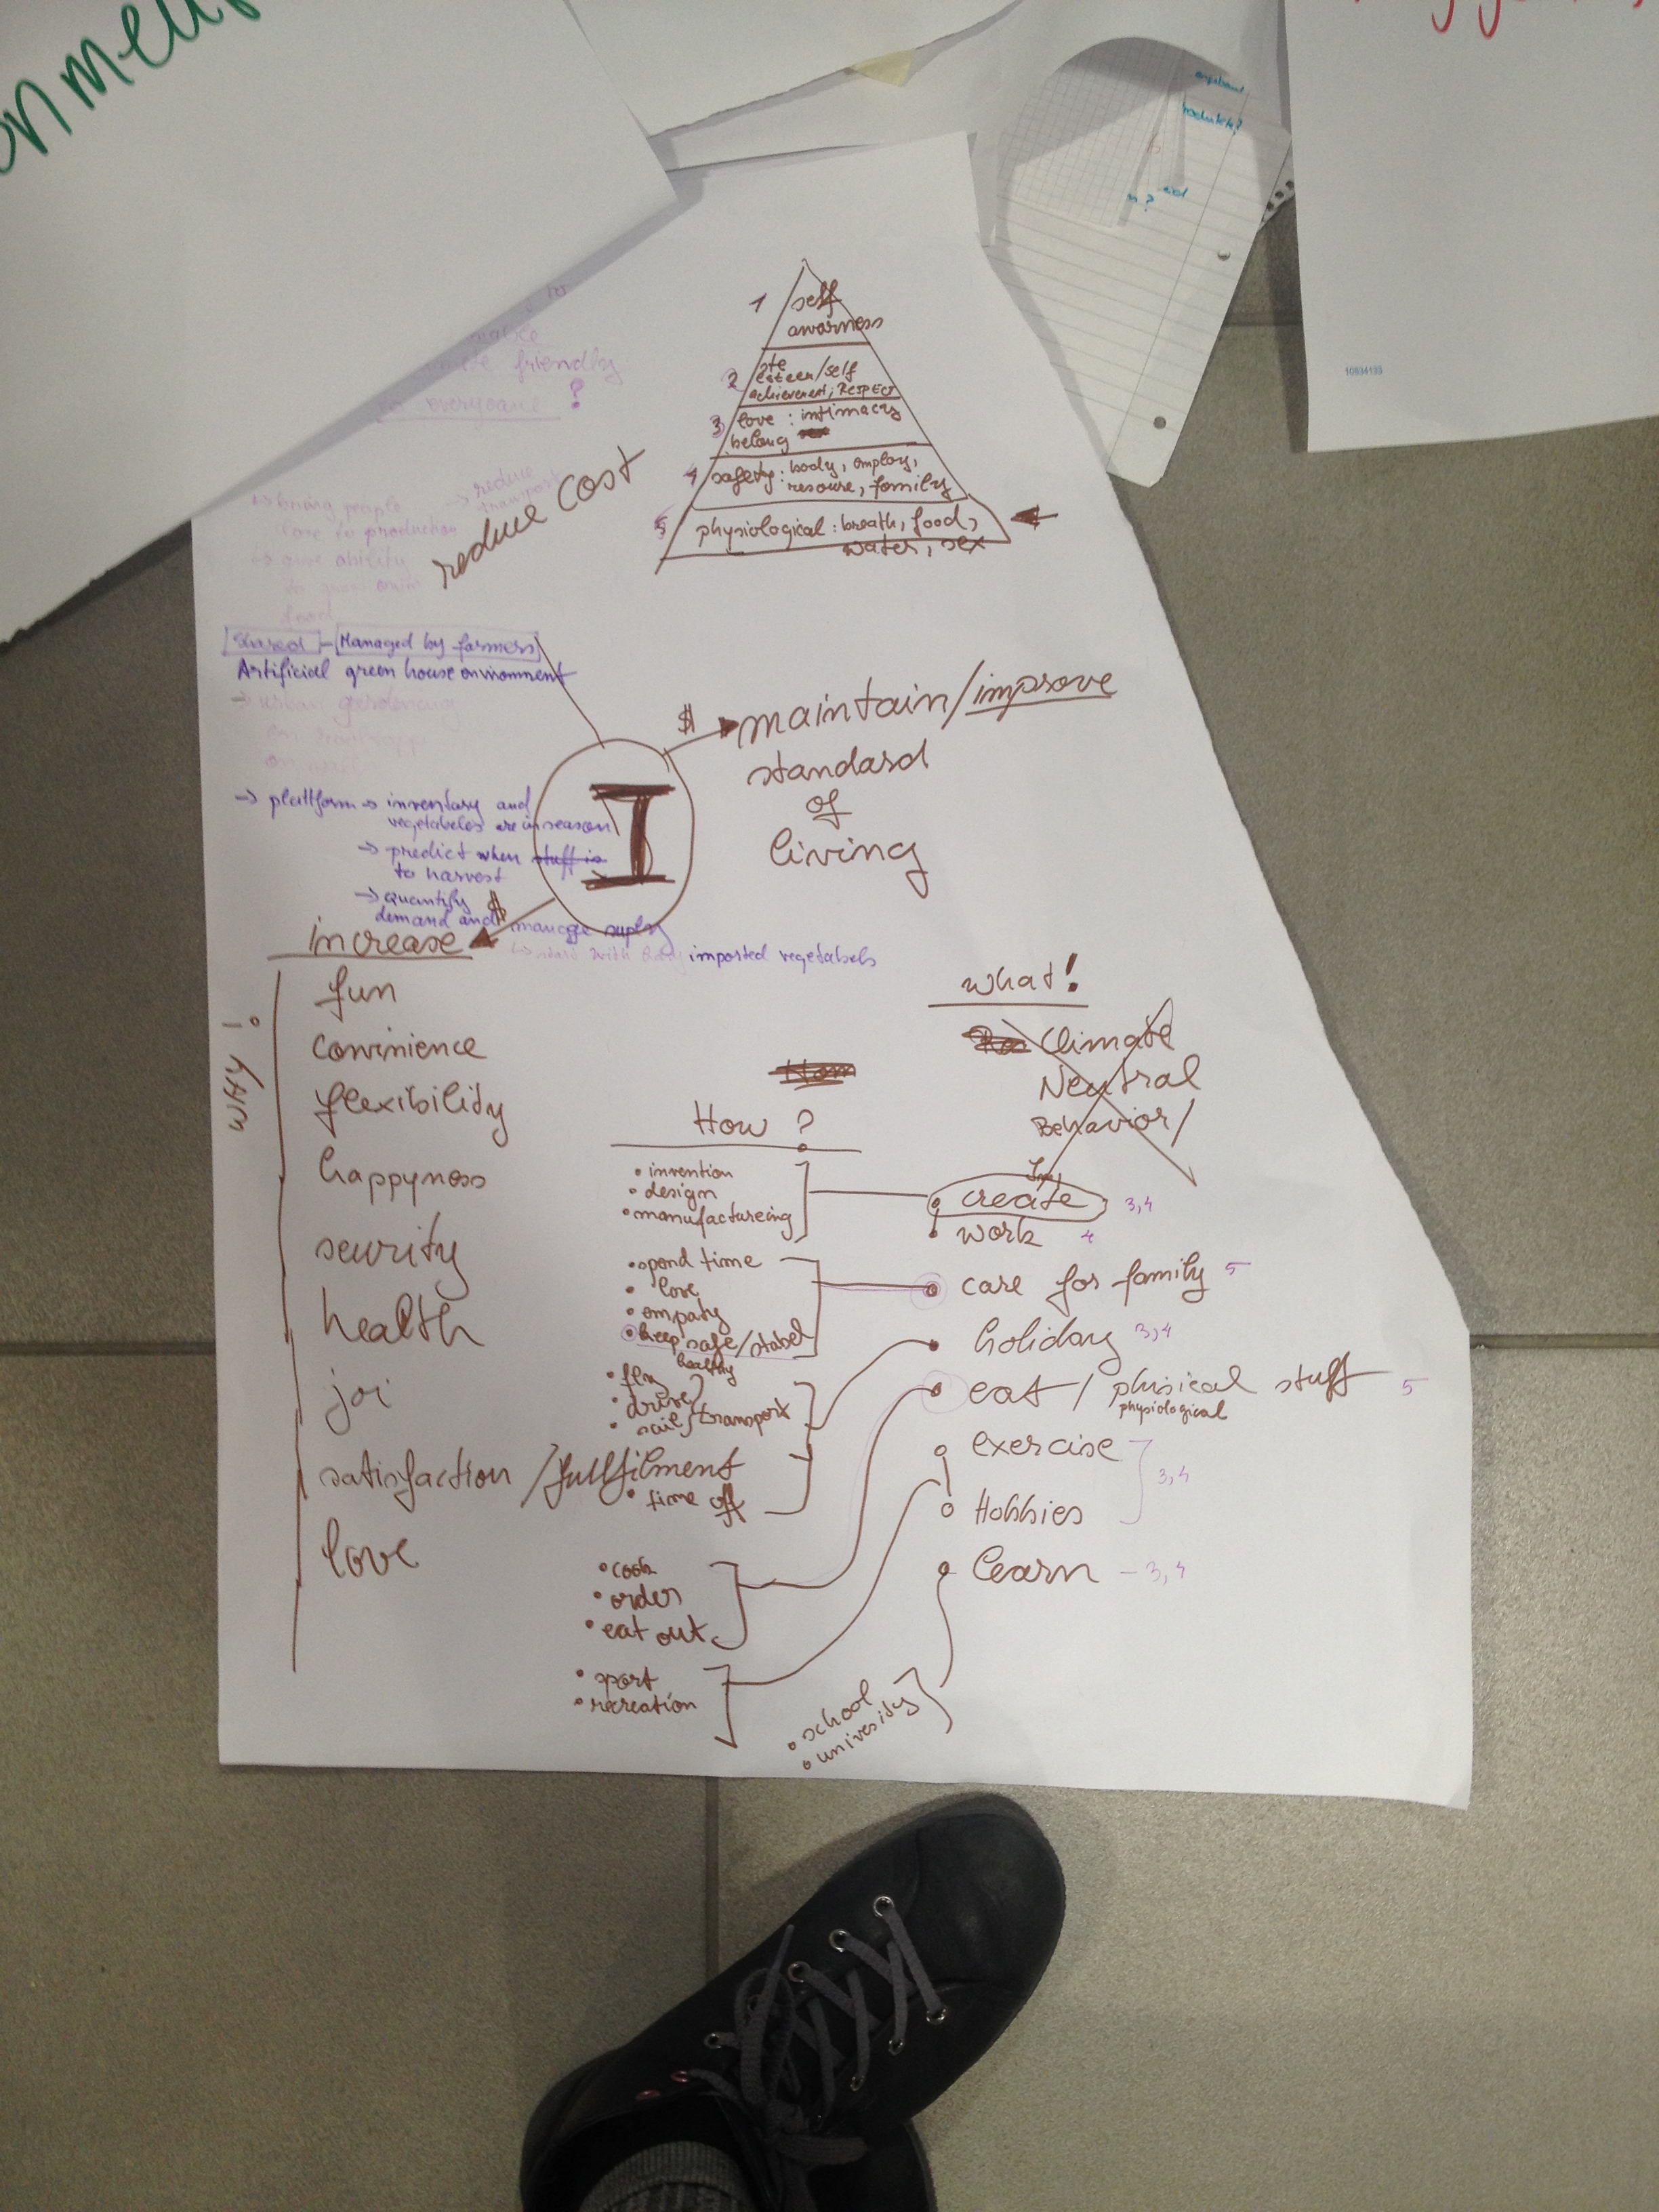 onment
10834133
1 self
awarness
2 esteem/self
achievement; RESPECT
3 love : intimacy
belong
4 safety : body, employ,
resourse, family
5 physiological : breath, food,
water, sex
friendly
for everyone ?
reduce cost
→ bring people
close to production
→ reduce
transport
→ give ability
to grow own
food
Shared - Managed by farmers
Artificial green house environment
→ urban gardening
→ plattform → inventary and
vegetabeles are in season
→ predict when stuff is
to harvest
→ quantify
demand and manage suply
→ start with imported vegetabels
I
$ maintain/improve
standard
of
living
$
increase
why ?
fun
convinience
flexibility
happyness
security
health
joi
satisfaction / fullfilment
love
How ?
• invention
• design
• manufactureing
• spend time
• love
• empaty
• keep safe/stabel
healthy
• fly
• drive
• sail
transport
• time off
• cook
• order
• eat out
• sport
• recreation
• school
• university
what!
Climate
Neutral
Behavior/
create 3,4
work 4
care for family 5
holiday 3,4
eat / phisical stuff 5
physiological
exercise
3,4
Hobbies
learn - 3,4